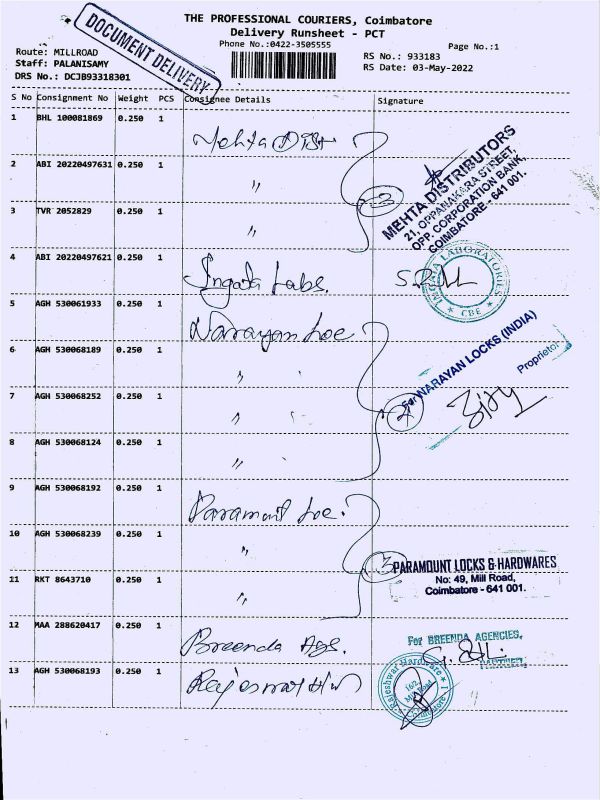 THE PROFESSIONAL COURIERS, Coimbatore
Delivery Runsheet - PCT
Phone No.:0422-3505555
Page No.:1
DOCUMENT DELIVERY
Route: MILLROAD
Staff: PALANISAMY
DRS No.: DCJB93318301
RS No.: 933183
RS Date: 03-May-2022
S No Consignment No Weight PCS Consignee Details Signature
1 BHL 100081869 0.250 1 Mehta Dist
2 ABI 20220497631 0.250 1 "
3 TVR 2052829 0.250 1 "
3
MEHTA DISTRIBUTORS
21, OPPANAKARA STREET,
OPP. CORPORATION BANK,
COIMBATORE - 641 001.
4 ABI 20220497621 0.250 1 Labs.
LABORATORIES
CBE
5 AGH 530061933 0.250 1 Narayan Loc
6 AGH 530068189 0.250 1 "
7 AGH 530068252 0.250 1 "
8 AGH 530068124 0.250 1 "
4
For NARAYAN LOCKS (INDIA)
Proprietor
9 AGH 530068192 0.250 1 Paramount Loc.
10 AGH 530068239 0.250 1 "
11 RKT 8643710 0.250 1 "
3
PARAMOUNT LOCKS & HARDWARES
No: 49, Mill Road,
Coimbatore - 641 001.
12 MAA 288620417 0.250 1 Breenda Ags.
For BREENDA AGENCIES,
PARTNER
13 AGH 530068193 0.250 1 Rajeswar H/w
Rajeshwar Hardware
Mill Road
Coimbatore